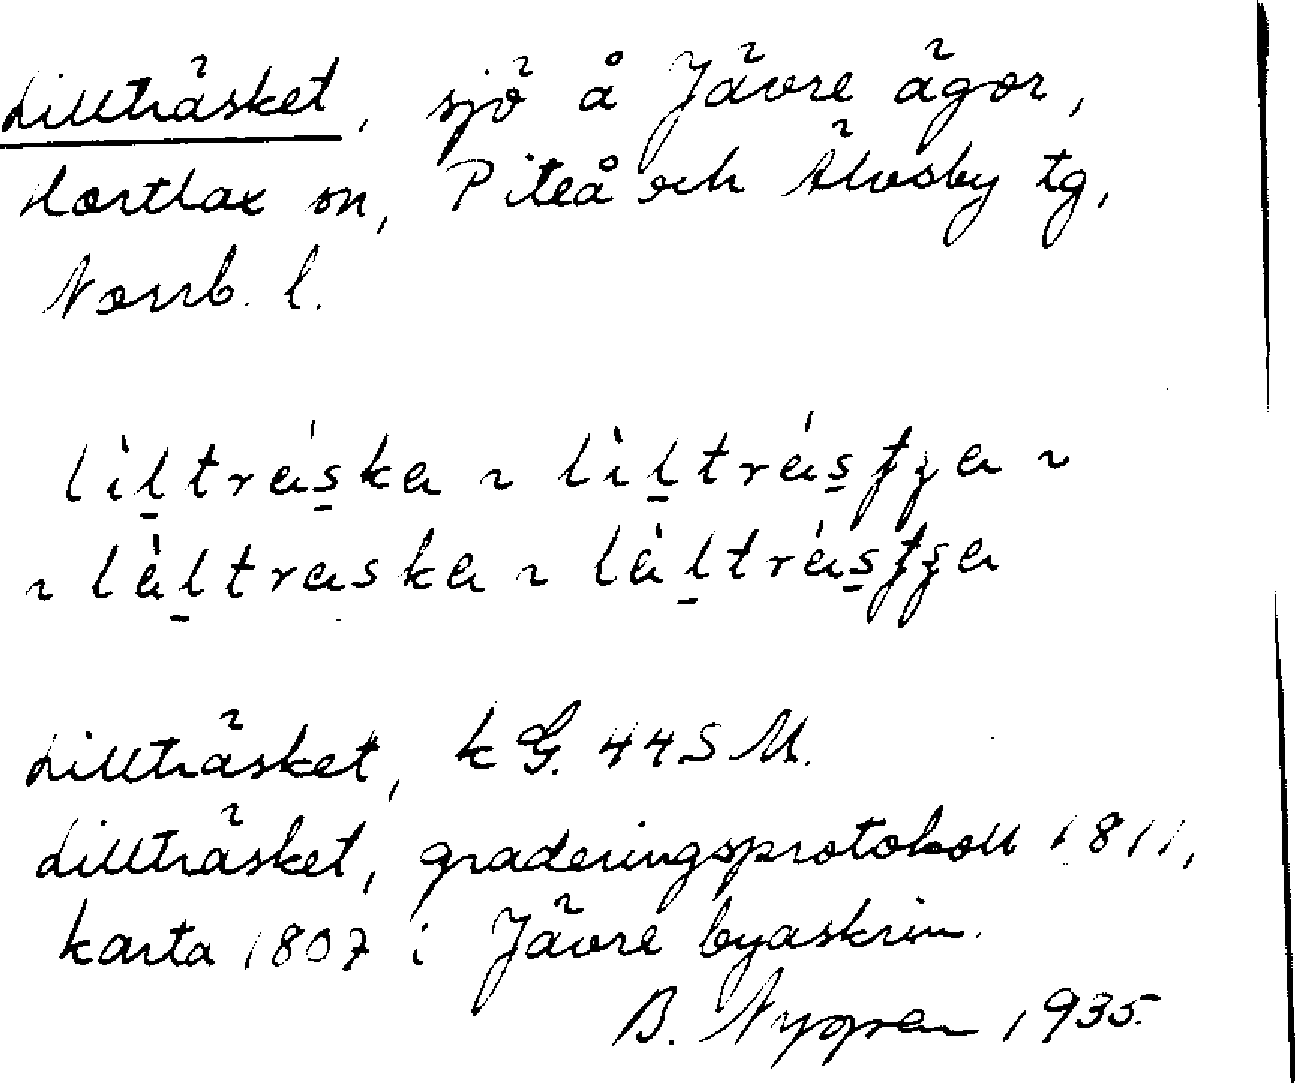 Lillträsket, sjö å Jävre ägor,
Hortlax sn, Piteå och Älvsby tg,
Norrb. l.
Lillträsket, k G. 44 S M.
Lillträsket, graderingsprotokoll 1811,
karta 1807 i Jävre byaskrin.
B. Nygren 1935.